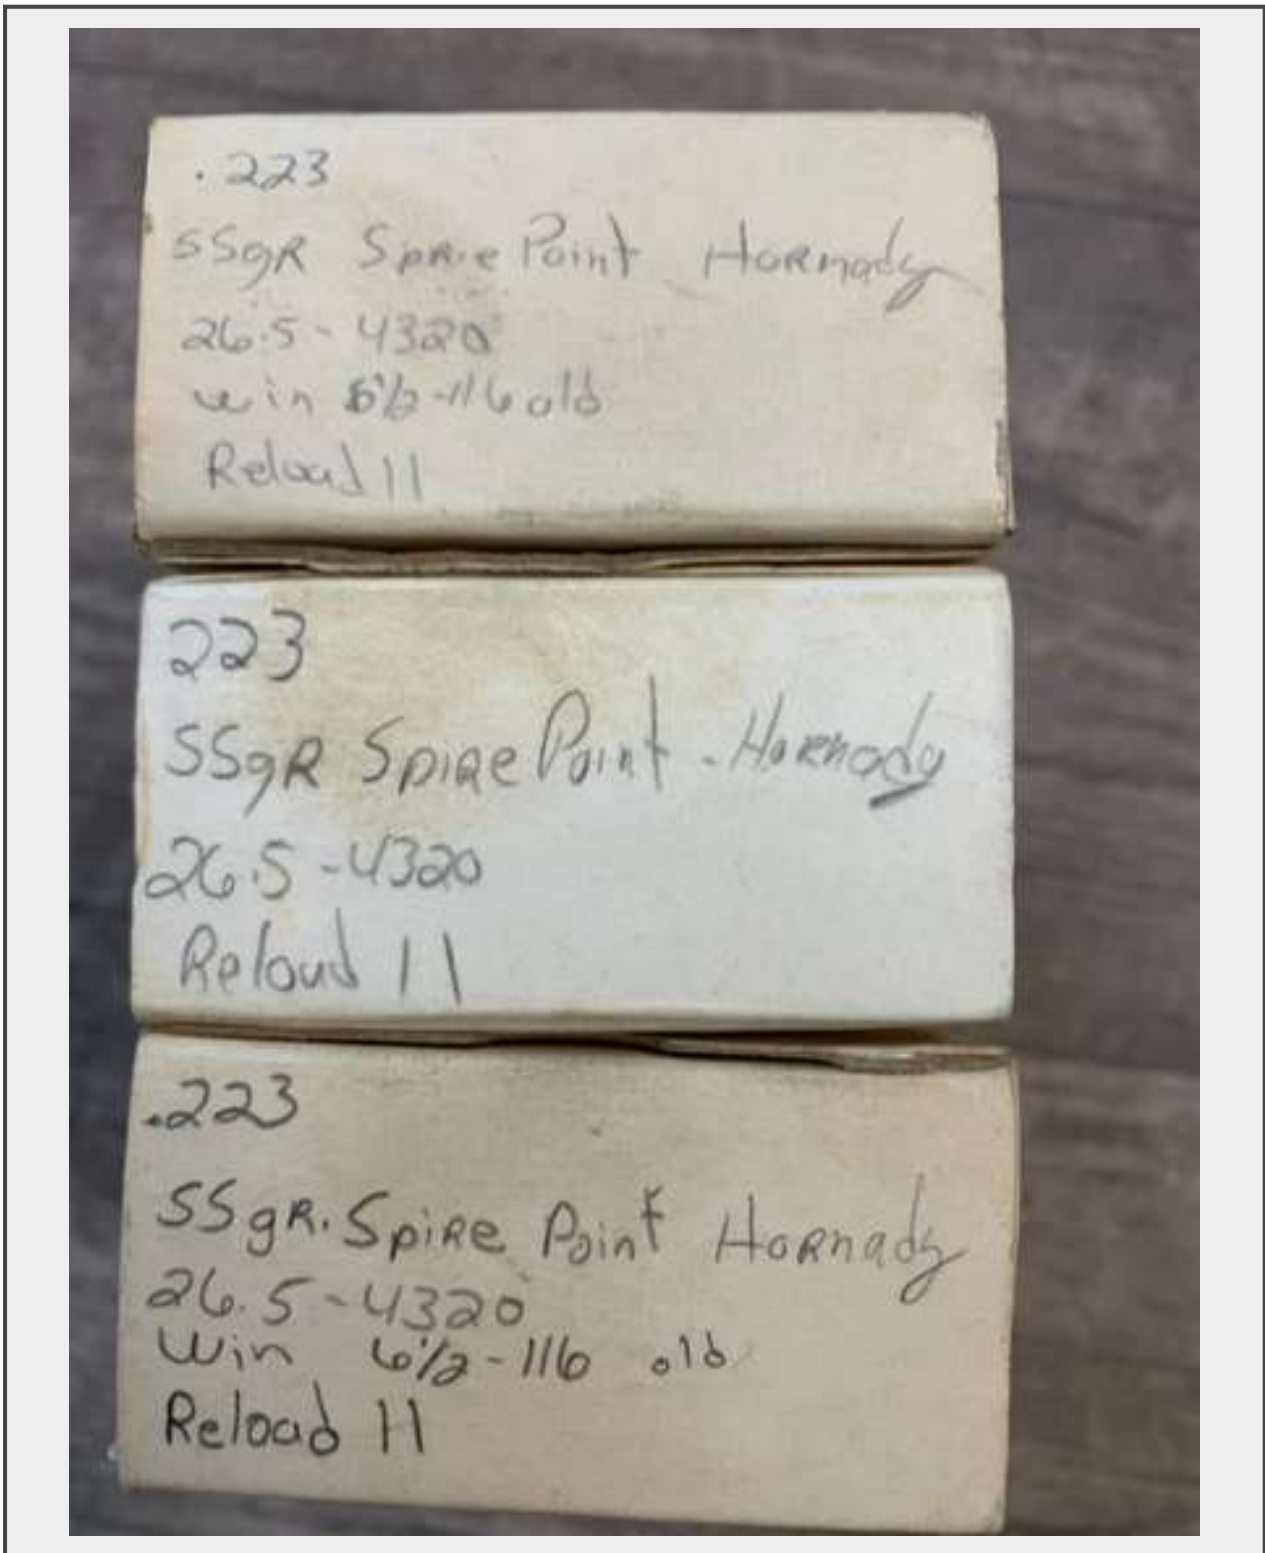 .223
55gR Spire Point Hornady
26.5-4320
Win 6½-116 old
Reload 11
223
55gR Spire Point - Hornady
26.5-4320
Reload 11
.223
55gR. Spire Point Hornady
26.5-4320
Win 6½-116 old
Reload 11